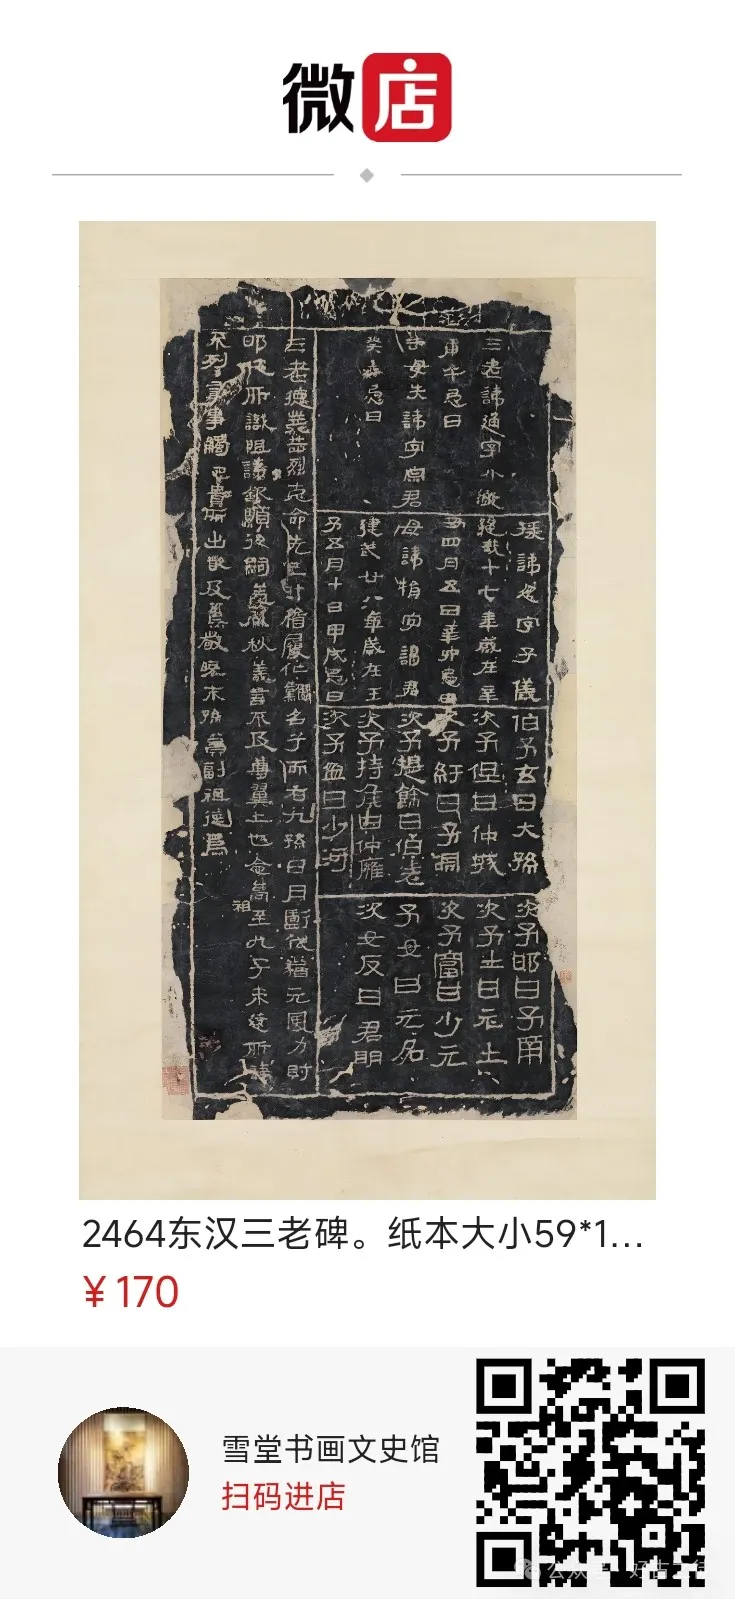 微店
三老諱通字小父
庚午忌日
祖母失諱字宗君
癸未忌日
掾諱忽字子儀
建武十七年歲在辛
丑四月五日辛卯忌日
母諱捐字謁君
建武廿八年歲在壬
子五月十日甲戌忌日
伯子玄曰大孫
次子但曰仲城
次子紆曰子淵
次子提餘曰伯老
次子持侯曰仲雍
次子盆曰少河
次子邯曰子南
次子士曰元士
次子富曰少元
子女曰无名
次女反曰君明
三老德業赫烈克命先己汁稽履仁難名兮而右九孫日月虧代猶元風力射
邯及所識祖諱欽顯後嗣蓋春秋義言不及尊翼上也念高祖至九子未遠所諱
不列言事觸忌貴所出嚴及焦敬曉末孫冀副祖德焉
2464东汉三老碑。纸本大小59*1...
¥170
雪堂书画文史馆
扫码进店